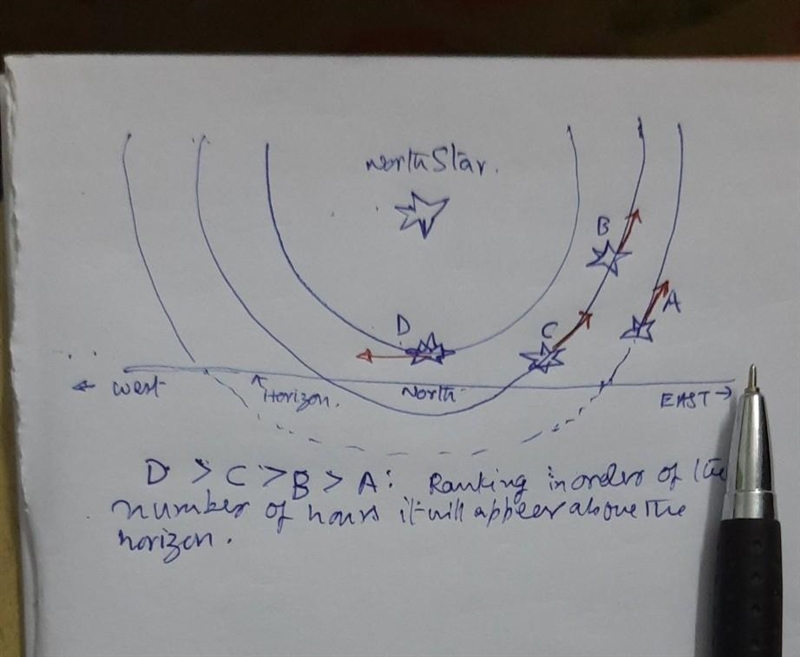 North Star.
B
A
D
C
← West
Horizon.
North
EAST →
D > C > B > A: Ranking in order of the
number of hours it will appear above the
horizon.